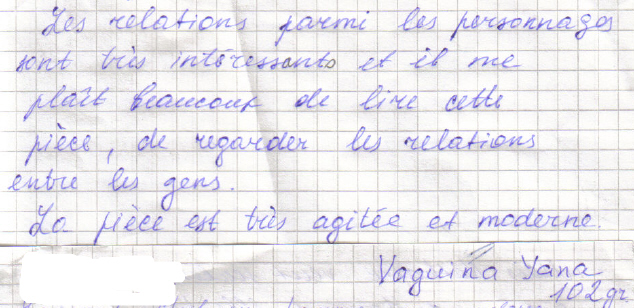 Les relations parmi les personnages
sont très intéressants et il me
plaît beaucoup de lire cette
pièce, de regarder les relations
entre les gens.
La pièce est très agitée et moderne.
Vaguina Yana
102gr